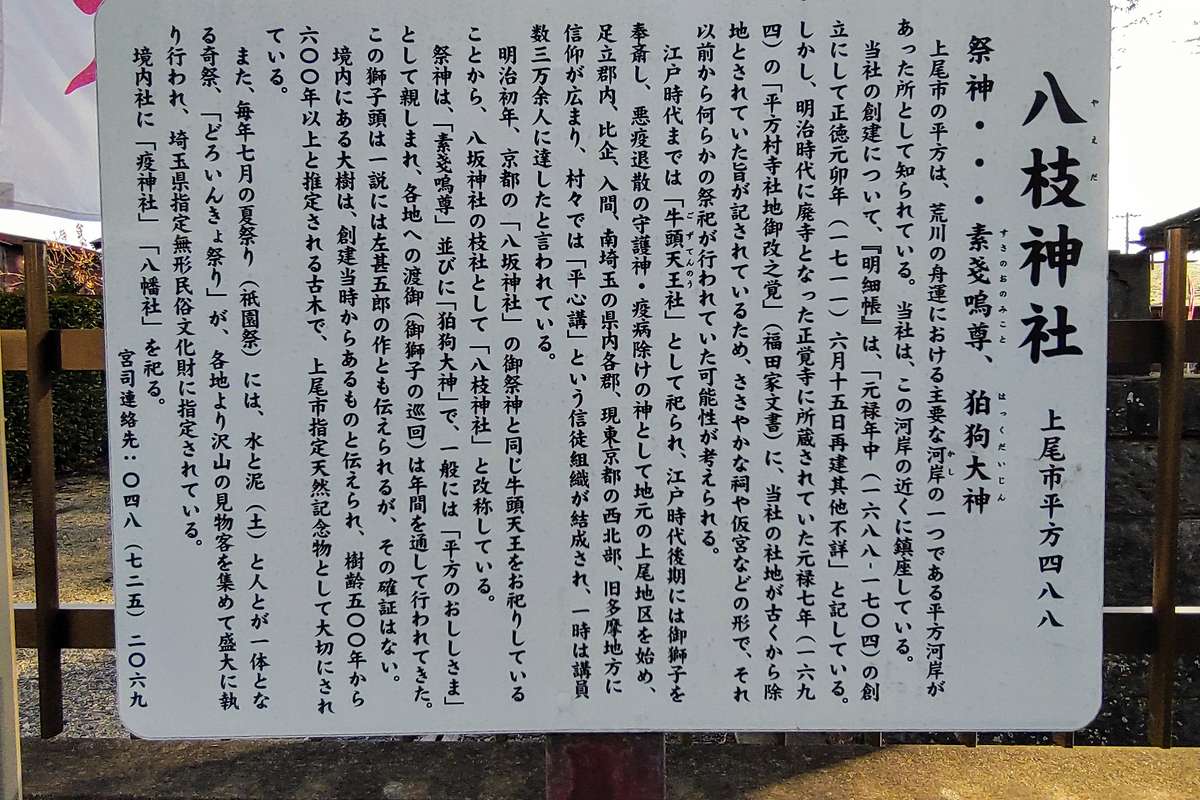 八枝神社 上尾市平方四八八
やえだ
祭神・・・素戔嗚尊、狛狗大神
すさのおのみこと はっくだいじん
上尾市の平方は、荒川の舟運における主要な河岸の一つである平方河岸が
かし
あった所として知られている。当社は、この河岸の近くに鎮座している。
当社の創建について、『明細帳』は、「元禄年中（一六八八-一七〇四）の創
立にして正徳元卯年（一七一一）六月十五日再建其他不詳」と記している。
しかし、明治時代に廃寺となった正覚寺に所蔵されていた元禄七年（一六九
四）の「平方村寺社地御改之覚」（福田家文書）に、当社の社地が古くから除
地とされていた旨が記されているため、ささやかな祠や仮宮などの形で、それ
以前から何らかの祭祀が行われていた可能性が考えられる。
江戸時代までは「牛頭天王社」として祀られ、江戸時代後期には御獅子を
ごずてんのう
奉斎し、悪疫退散の守護神・疫病除けの神として地元の上尾地区を始め、
足立郡内、比企、入間、南埼玉の県内各郡、現東京都の西北部、旧多摩地方に
信仰が広まり、村々では「平心講」という信徒組織が結成され、一時は講員
数三万余人に達したと言われている。
明治初年、京都の「八坂神社」の御祭神と同じ牛頭天王をお祀りしている
ことから、八坂神社の枝社として「八枝神社」と改称している。
祭神は、「素戔嗚尊」並びに「狛狗大神」で、一般には「平方のおししさま」
として親しまれ、各地への渡御（御獅子の巡回）は年間を通して行われてきた。
この獅子頭は一説には左甚五郎の作とも伝えられるが、その確証はない。
境内にある大樹は、創建当時からあるものと伝えられ、樹齢五〇〇年から
六〇〇年以上と推定される古木で、上尾市指定天然記念物として大切にされ
ている。
また、毎年七月の夏祭り（祇園祭）には、水と泥（土）と人とが一体とな
る奇祭、「どろいんきょ祭り」が、各地より沢山の見物客を集めて盛大に執
り行われ、埼玉県指定無形民俗文化財に指定されている。
境内社に「疫神社」「八幡社」を祀る。
宮司連絡先：〇四八（七二五）二〇六九